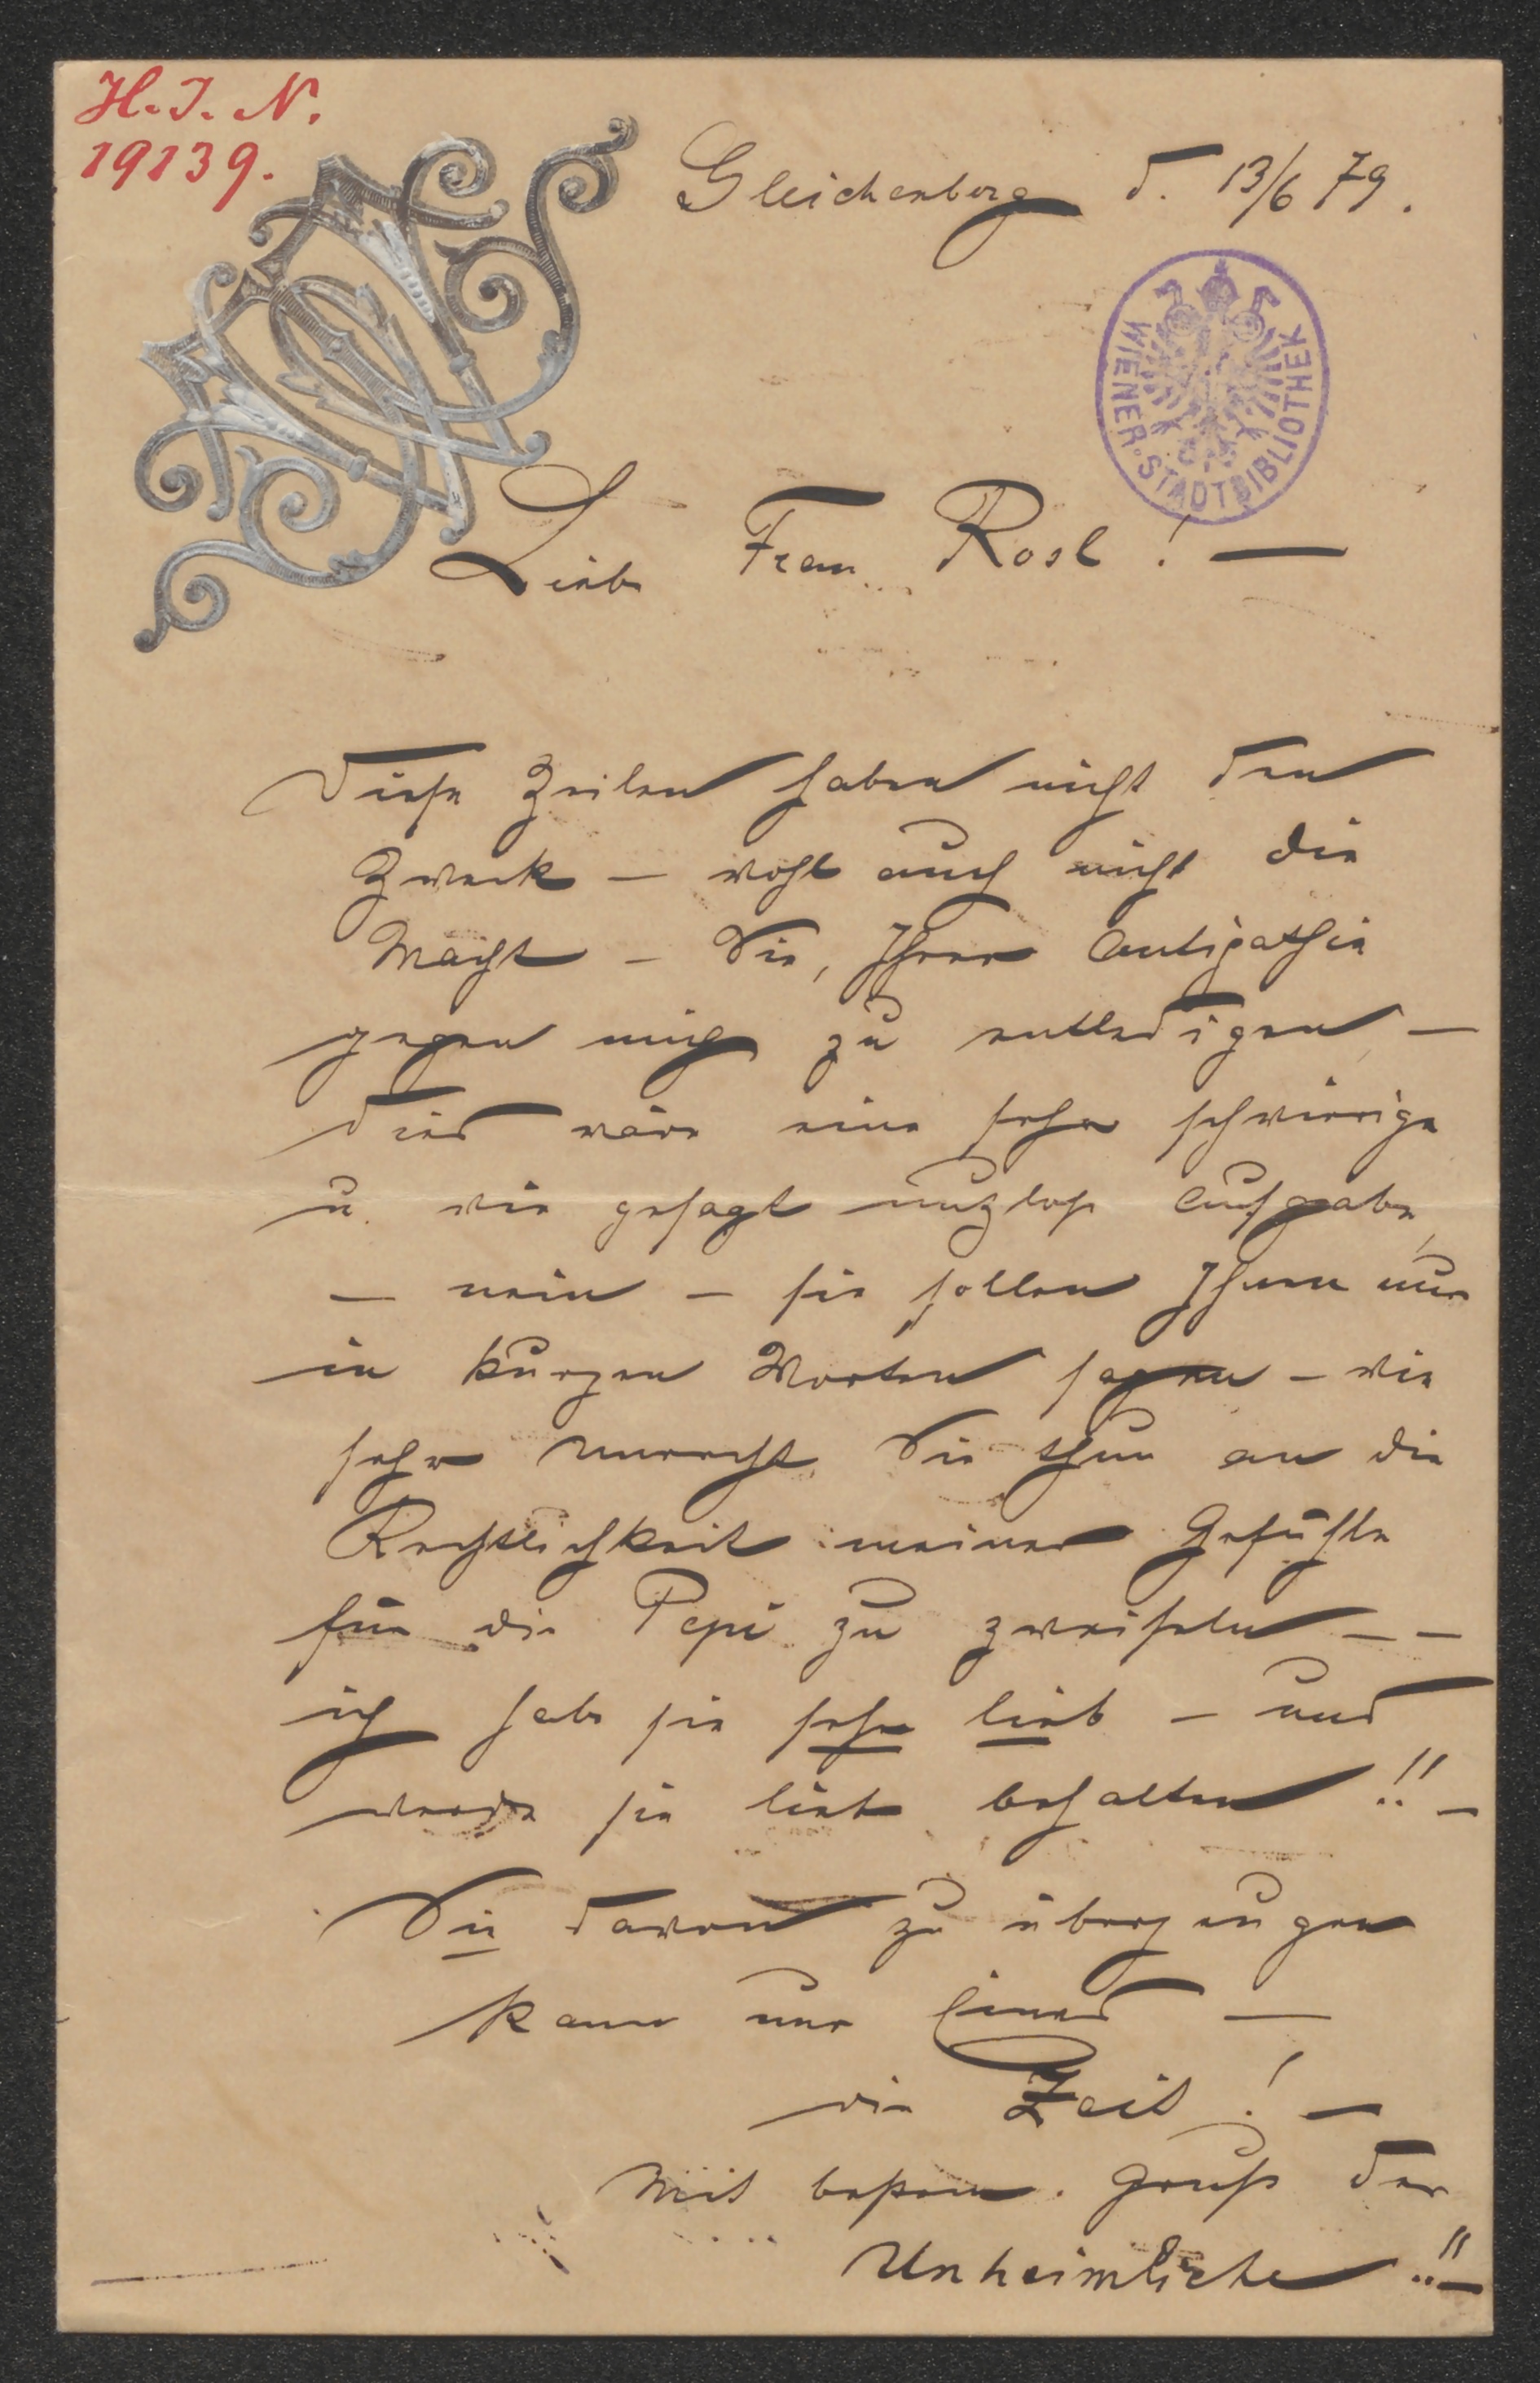 H. I. N.
19139.
Gleichenberg d. 13/6 79.
WIENER STADTBIBLIOTHEK
Liebe Frau Rosl! —
Diese Zeilen haben nicht den
Zweck — wohl auch nicht die
Macht — Sie, Ihrer Antipathie
gegen mich zu entledigen —
dies wäre eine sehr schwierige
u. wie gesagt nutzlose Aufgabe,
— nein — sie sollen Ihnen nur
in kurzen Worten sagen — wie
sehr unrecht Sie thun an die
Rechtlichkeit meiner Gefühle
für die Pepi zu zweifeln — —
ich habe sie sehr lieb — und
werde sie lieb behalten!! —
Sie davon zu überzeugen
kann nur Eines —
die Zeit! —
Mit bestem Gruß der
Unheimliche!! —